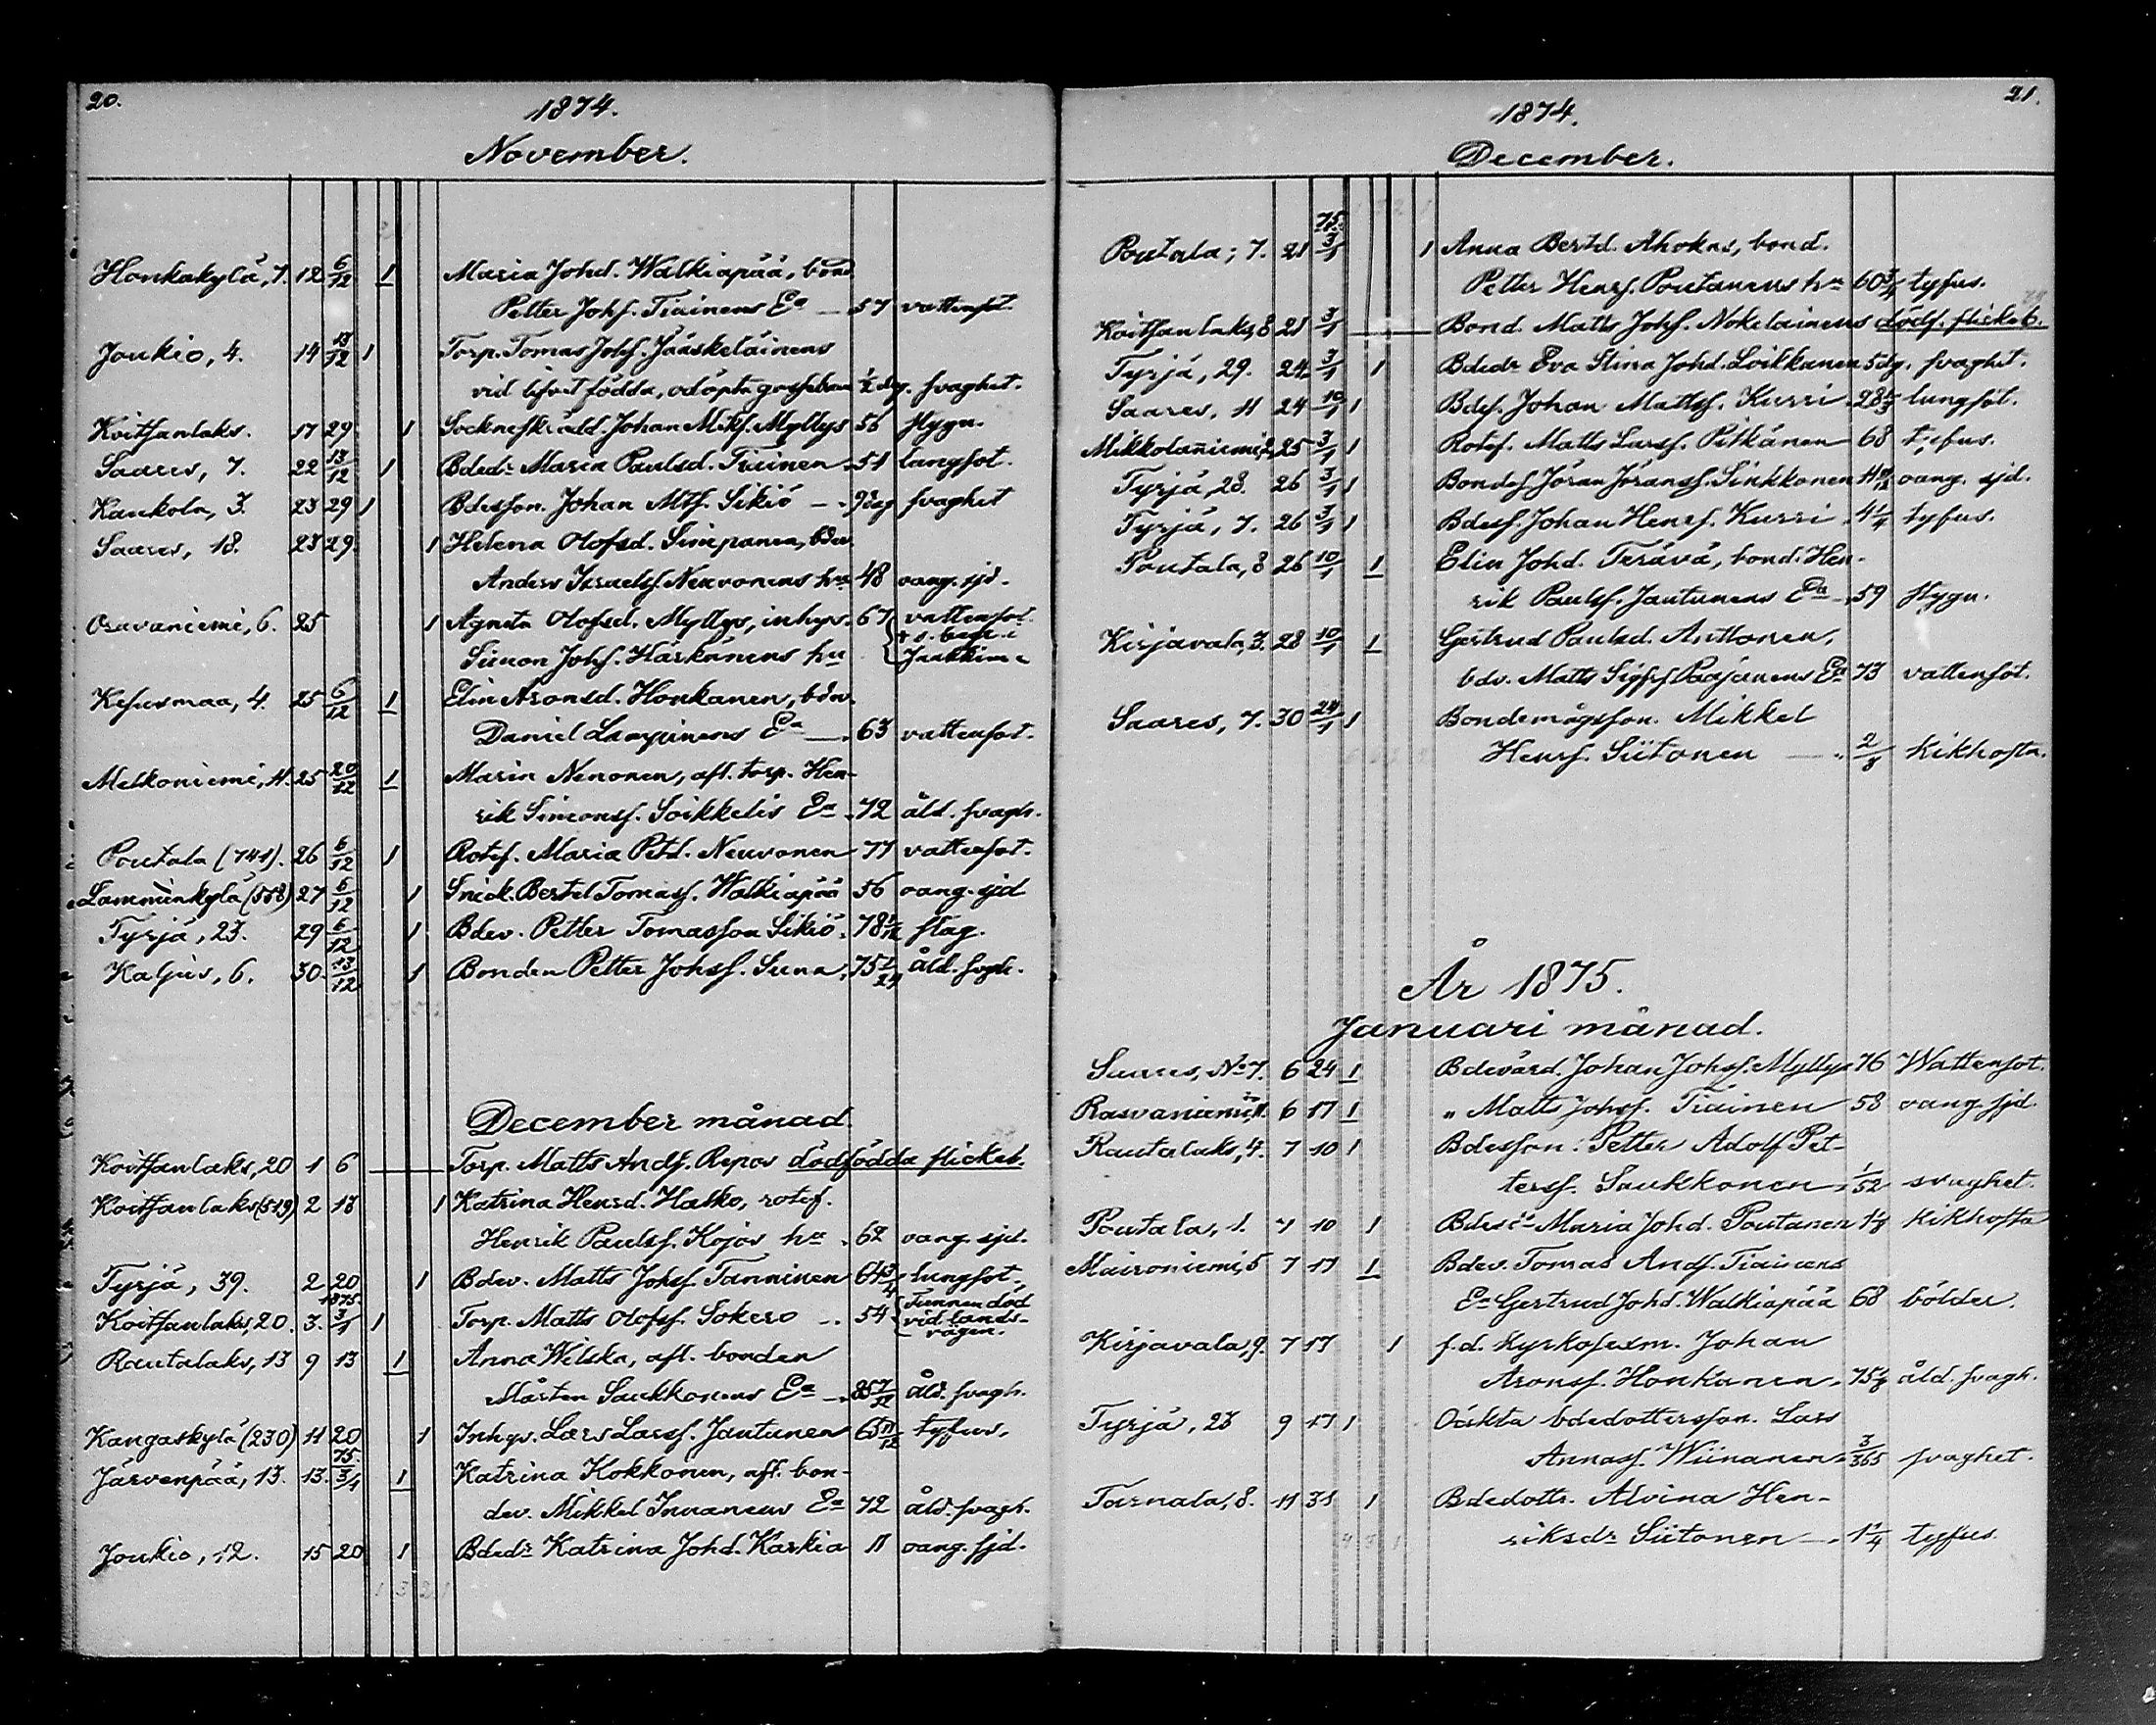 20.
1874.
November.
Honkakylä, 7. 12 6/12 1 Maria Johd. Walkiapää, bond
Petter Johs. Tiainens Ea — 57 vattensot.
Joukio, 4. 14 13/12 1 Torp. Tomas Johs. Jääskeläinens
vid lifvet födda, odöpta gossebarn 1/2 dag. svaghet.
Koitsanlaks. 17 29 1 Sockneskrädd. Johan Miks. Myllys 56 stygn.
Saares, 7. 22 13/12 1 Bdedr Maria Paulsd. Tiainen 51 lungsot.
Kaukola, 3. 23 29 1 Bdesson. Johan Mtss. Sikiö — 9 dag svaghet
Saares, 18. 23 29. 1 Helena Olofsd. Simpanen, bdev.
Anders Israelss. Neuvonens hu 48 oang. sjd.
Oravaniemi, 6. 25 1 Agneta Olofsd. Myllys, inhys. 67 vattensot.
Simon Johs. Härkönens hu + s. begr. i Jaakkima
Kesusmaa, 4. 25 6/12 1 Elin Aronsd. Honkanen, bdev.
Daniel Lampinens Ea — 63 vattensot.
Melkoniemi, 11. 25 20/12 1 Maria Nenonen, afl. torp. Hen-
rik Simonss. Soikkelis Ea 72 åld. svagh.
Poutala (741). 26 6/12 1 Rotef. Maria Petd. Neuvonen 77 vattensot.
Lamminkylä (558) 27 6/12 1 Snick. Bertel Tomass. Walkiapää 56 oang. sjd
Tyrjä, 23. 29 6/12 1 Bdev. Petter Tomasson Sikiö. slag.
Kaljus, 6. 30. 13/12 1 Bonden Petter Johss. Suna, åld. svgh.
December månad.
Koitsanlaks, 20 1 6 — Torp. Matts Ands. Repos dödfödda flickeb.
Koitsanlaks (519) 2 13 1 Katrina Hensd. Hatko, rotef.
Henrik Paulss. Kojos hu. 62 oang. sjd.
Tyrjä, 39. 2 20 1 Bdev. Matts Johss. Tanninen 64 3/4 lungsot.
Koitsanlaks, 20. 3. 1875. 3/1 1 Torp. Matts Olofss. Sokero — 54 Funnen död
vid lands-
vägen.
Rautalaks, 13 9 13 1 Anna Wilska, afl. bonden
Mårten Saukkonens Ea — 85 7/12 åld. svagh.
Kangaskylä (230) 11 20 1 Inhys. Lars Larss. Jantunen 65 11/12 tyfus.
Järvenpää, 13. 13. 75. 3/1 1 Katrina Kokkonen, afl. bon-
dev. Mikkel Innanens Ea 72 åld. svagh.
Joukio, 12. 15 20 1 Bdedr Katrina Johd. Karkia 11 oang. sjd.
21.
1874.
December.
Poutala; 7. 21 75. 3/1 1 Anna Bertd. Ahokas, bond.
Petter Henrs. Poutanens hu 60 3/4 tyfus.
Koitsanlaks, 8 21 3/1 — Bond. Matts Johs. Nokelainens dödf. flickeb.
Tyrjä, 29. 24 3/1 1 Bdedr Eva Stina Johd. Loikkanen 5 dg. svaghet.
Saares, 11 24 10/1 1 Bdes. Johan Mattss. Kurri lungsot.
Mikkolaniemi, 2, 25 3/1 1 Rotef. Matts Larss. Pitkänen 68 tyfus.
Tyrjä, 28. 26 3/1 1 Bondes. Jöran Jöranss. Sinkkonen oang. sjd.
Tyrjä, 7. 26 3/1 1 Bdess. Johan Henrs. Kurri 4 1/4 tyfus.
Poutala, 8 26 10/1 1 Elin Johd. Terävä, bond. Hen-
rik Paulss. Jantunens Ea 59 stygn.
Kirjavala, 3. 28 10/1 1 Gertrud Paulsd. Anttonen,
bdv. Matts Sigfrs. Paajanens Ea 73 vattensot.
Saares, 7. 30 24/1 1 Bondemågsson. Mikkel
Henrs. Siitonen — Kikhosta.
År 1875.
Januari månad.
Saares, No 7. 6 24 1 Bdevärd. Johan Johss. Myllys 76 Wattensot.
Rasvaniemi, 11. 6 17 1 " Matts Johss. Tiainen 58 oang. sjd.
Rautalaks, 4. 7 10 1 Bdesson: Petter Adolf Pet-
terss. Saukkonen 1/52 svaghet.
Poutala, 1. 7 10 1 Bdedr Maria Johd. Poutanen kikhosta
Maironiemi, 5 7 17 1 Bdev. Tomas Ands. Tiainens
Ea Gertrud Johd. Walkiapää 68 bölder.
Kirjavala, 9. 7 17 1 f.d. kyrkosexm. Johan
Aronss. Honkanen. åld. svagh.
Tyrjä, 23 9 17 1 Oäkta bdedottersson. Lars
Annass. Wiinanen 3/365 svaghet.
Tarnala, 8. 11 31 1 Bdedottr. Alvina Hen-
riksdr Siitonen — 1 1/4 tyfus.